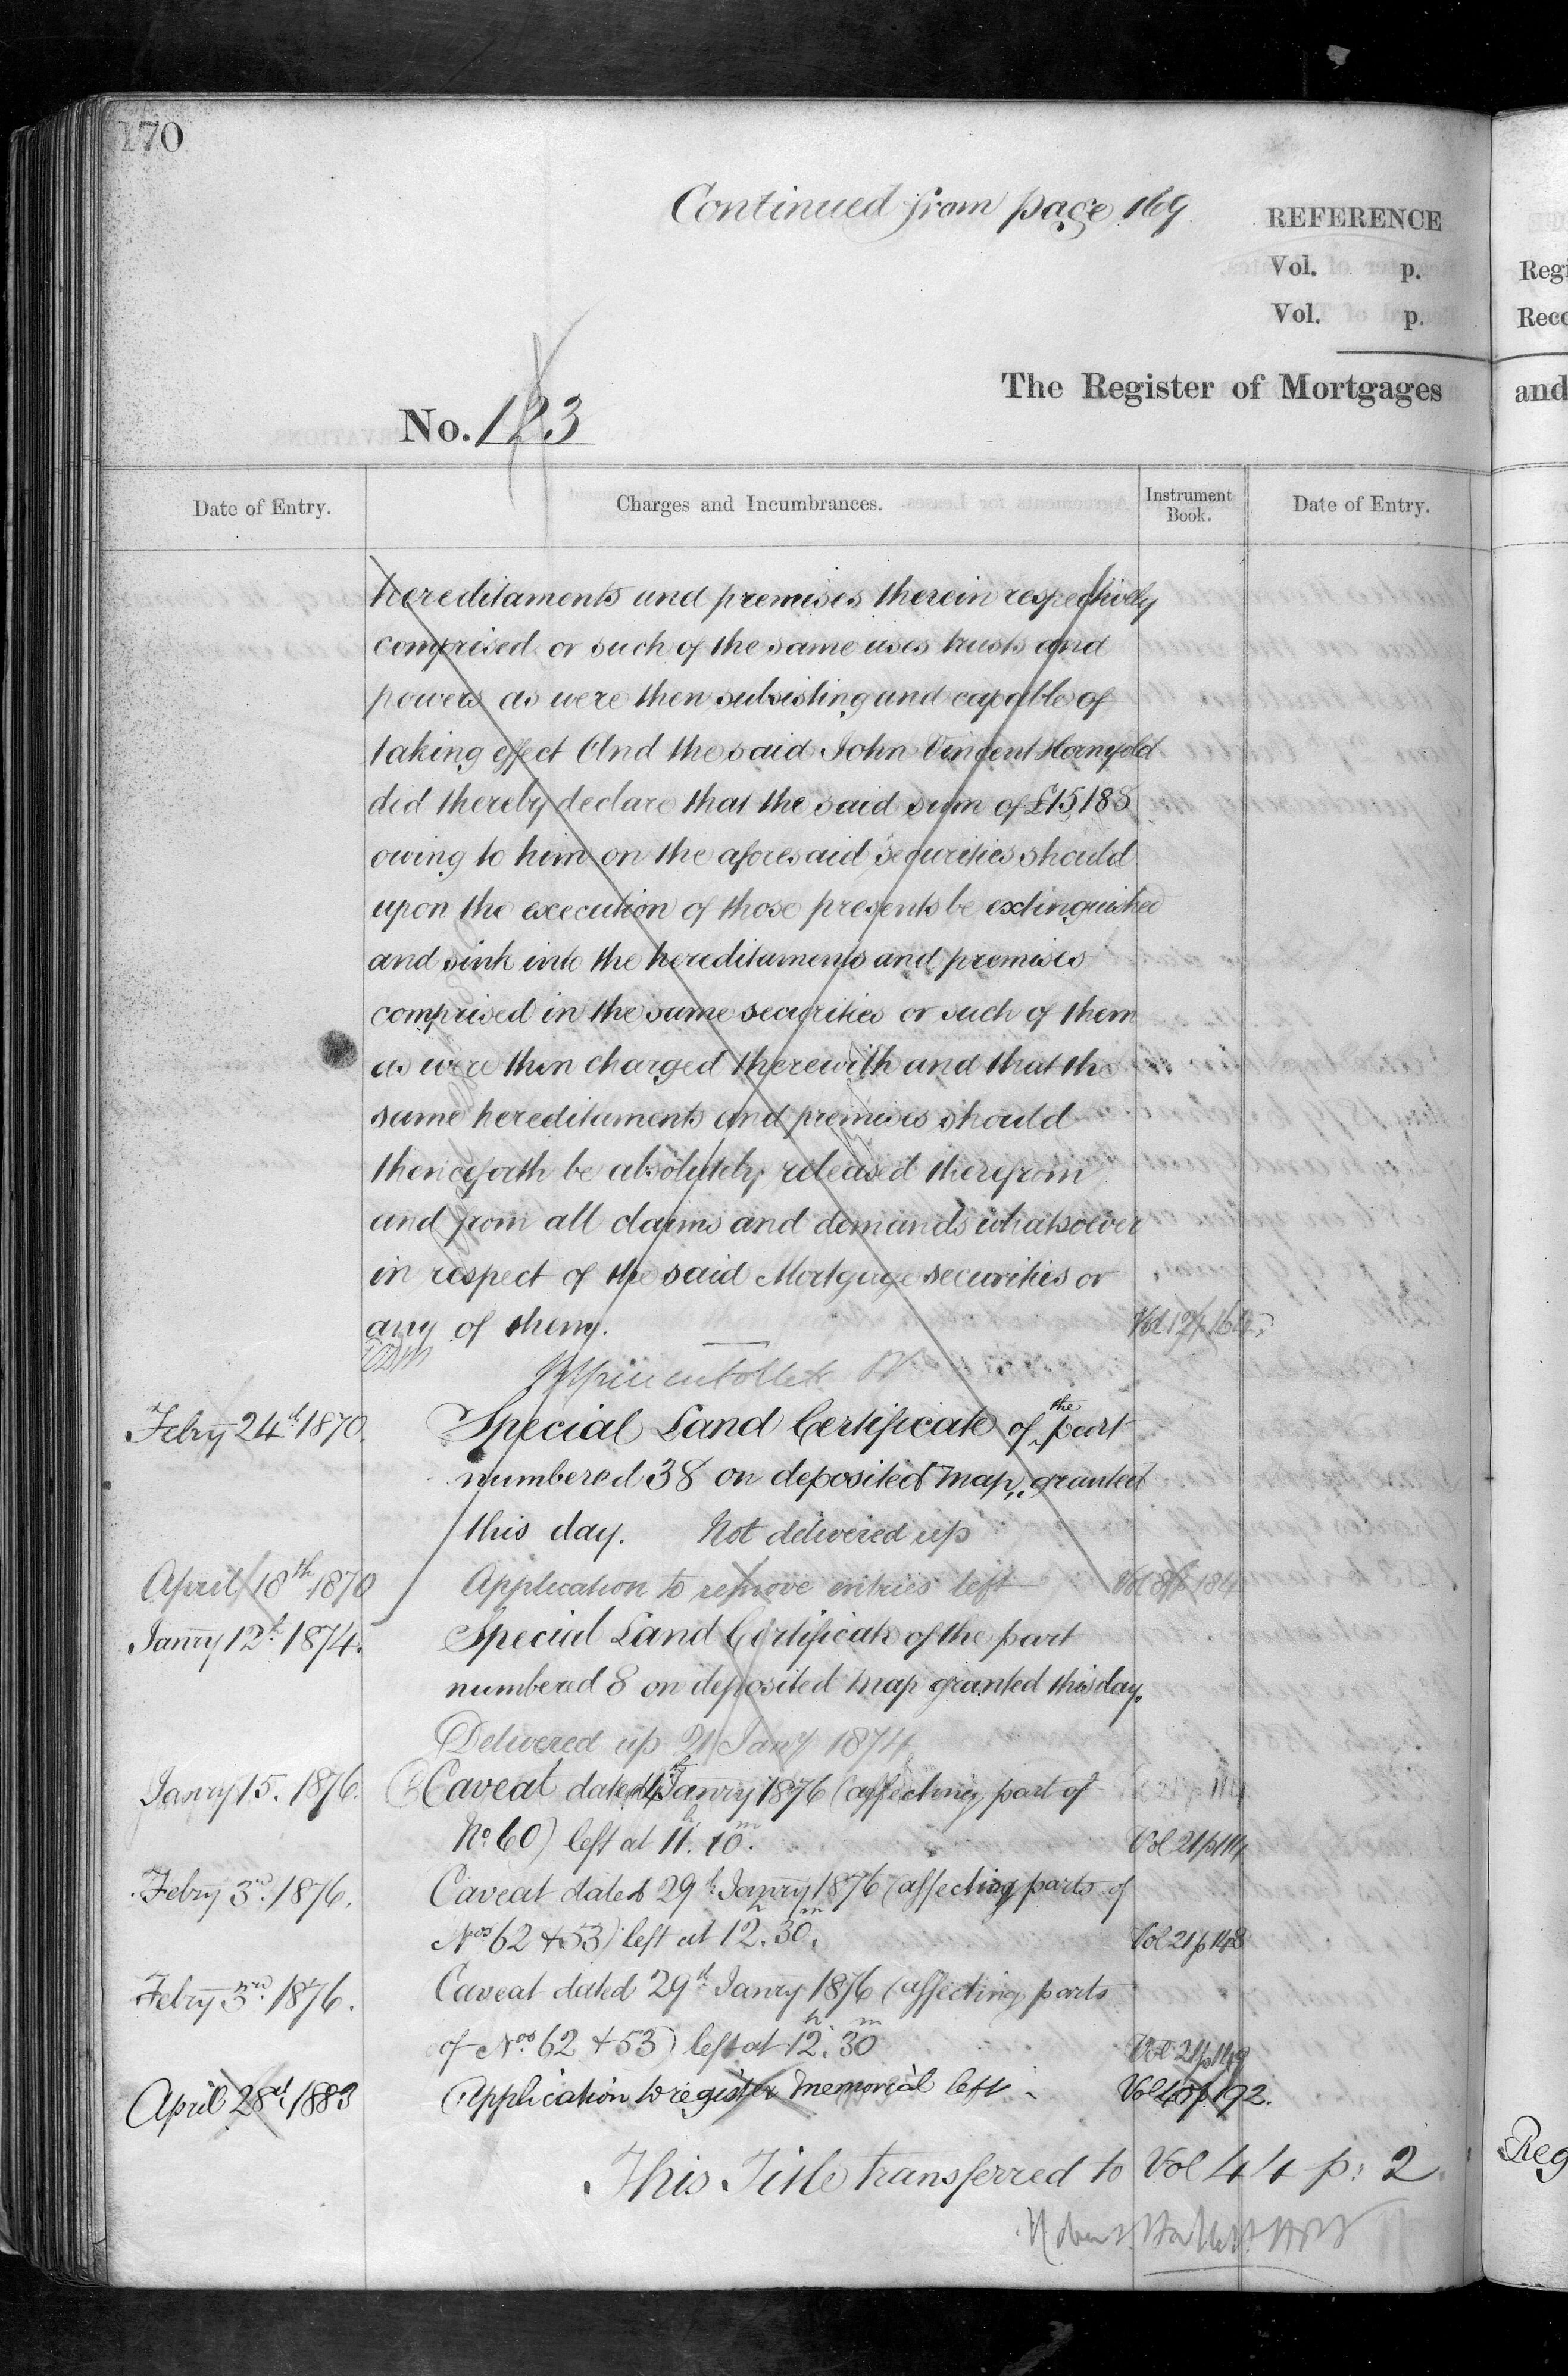 170
Continued from page 169
REFERENCE
Vol. p.
Vol. p.
The Register of Mortgages
No. 123
Date of Entry. Charges and Incumbrances. Instrument Book. Date of Entry.
hereditaments and premises therein respectively
comprised or such of the same uses trusts and
powers as were then subsisting and capable of
taking effect And the said John Vincent Hornyold
did thereby declare that the said sum of £15,188
owing to him on the aforesaid securities should
upon the execution of those presents be extinguished
and sink into the hereditaments and premises
comprised in the same securities or such of them
as were then charged therewith and that the
same hereditaments and premises should
thenceforth be absolutely released therefrom
and from all claims and demands whatsoever
in respect of the said Mortgage securities or
any of them. Vol 12 p 164
Febry 24th 1870. Special Land Certificate of the part
numbered 38 on deposited map, granted
this day. Not delivered up
April 18th 1870 Application to remove entries left Vol 8 p 184
Janry 12th 1874. Special Land Certificate of the part
numbered 8 on deposited map granted this day.
Delivered up 21 Jany 1874
Janry 15. 1876. Caveat dated 14th Janry 1876 (affecting part of
No. 60) left at 11h. 10m. Vol 21 p 114
Febry 3rd. 1876. Caveat dated 29th Janry 1876 (affecting parts of
Nos 62 & 53) left at 12h. 30m. Vol 21 p 148
Febry 3rd. 1876. Caveat dated 29th Janry 1876 (affecting parts
of Nos 62 & 53) left at 12h. 30m Vol 21 p 149
April 28th 1883 Application to register Memorial left - Vol 40 p 192.
This Title transferred to Vol 44 p: 2.
Regi
Reco
and
Reg